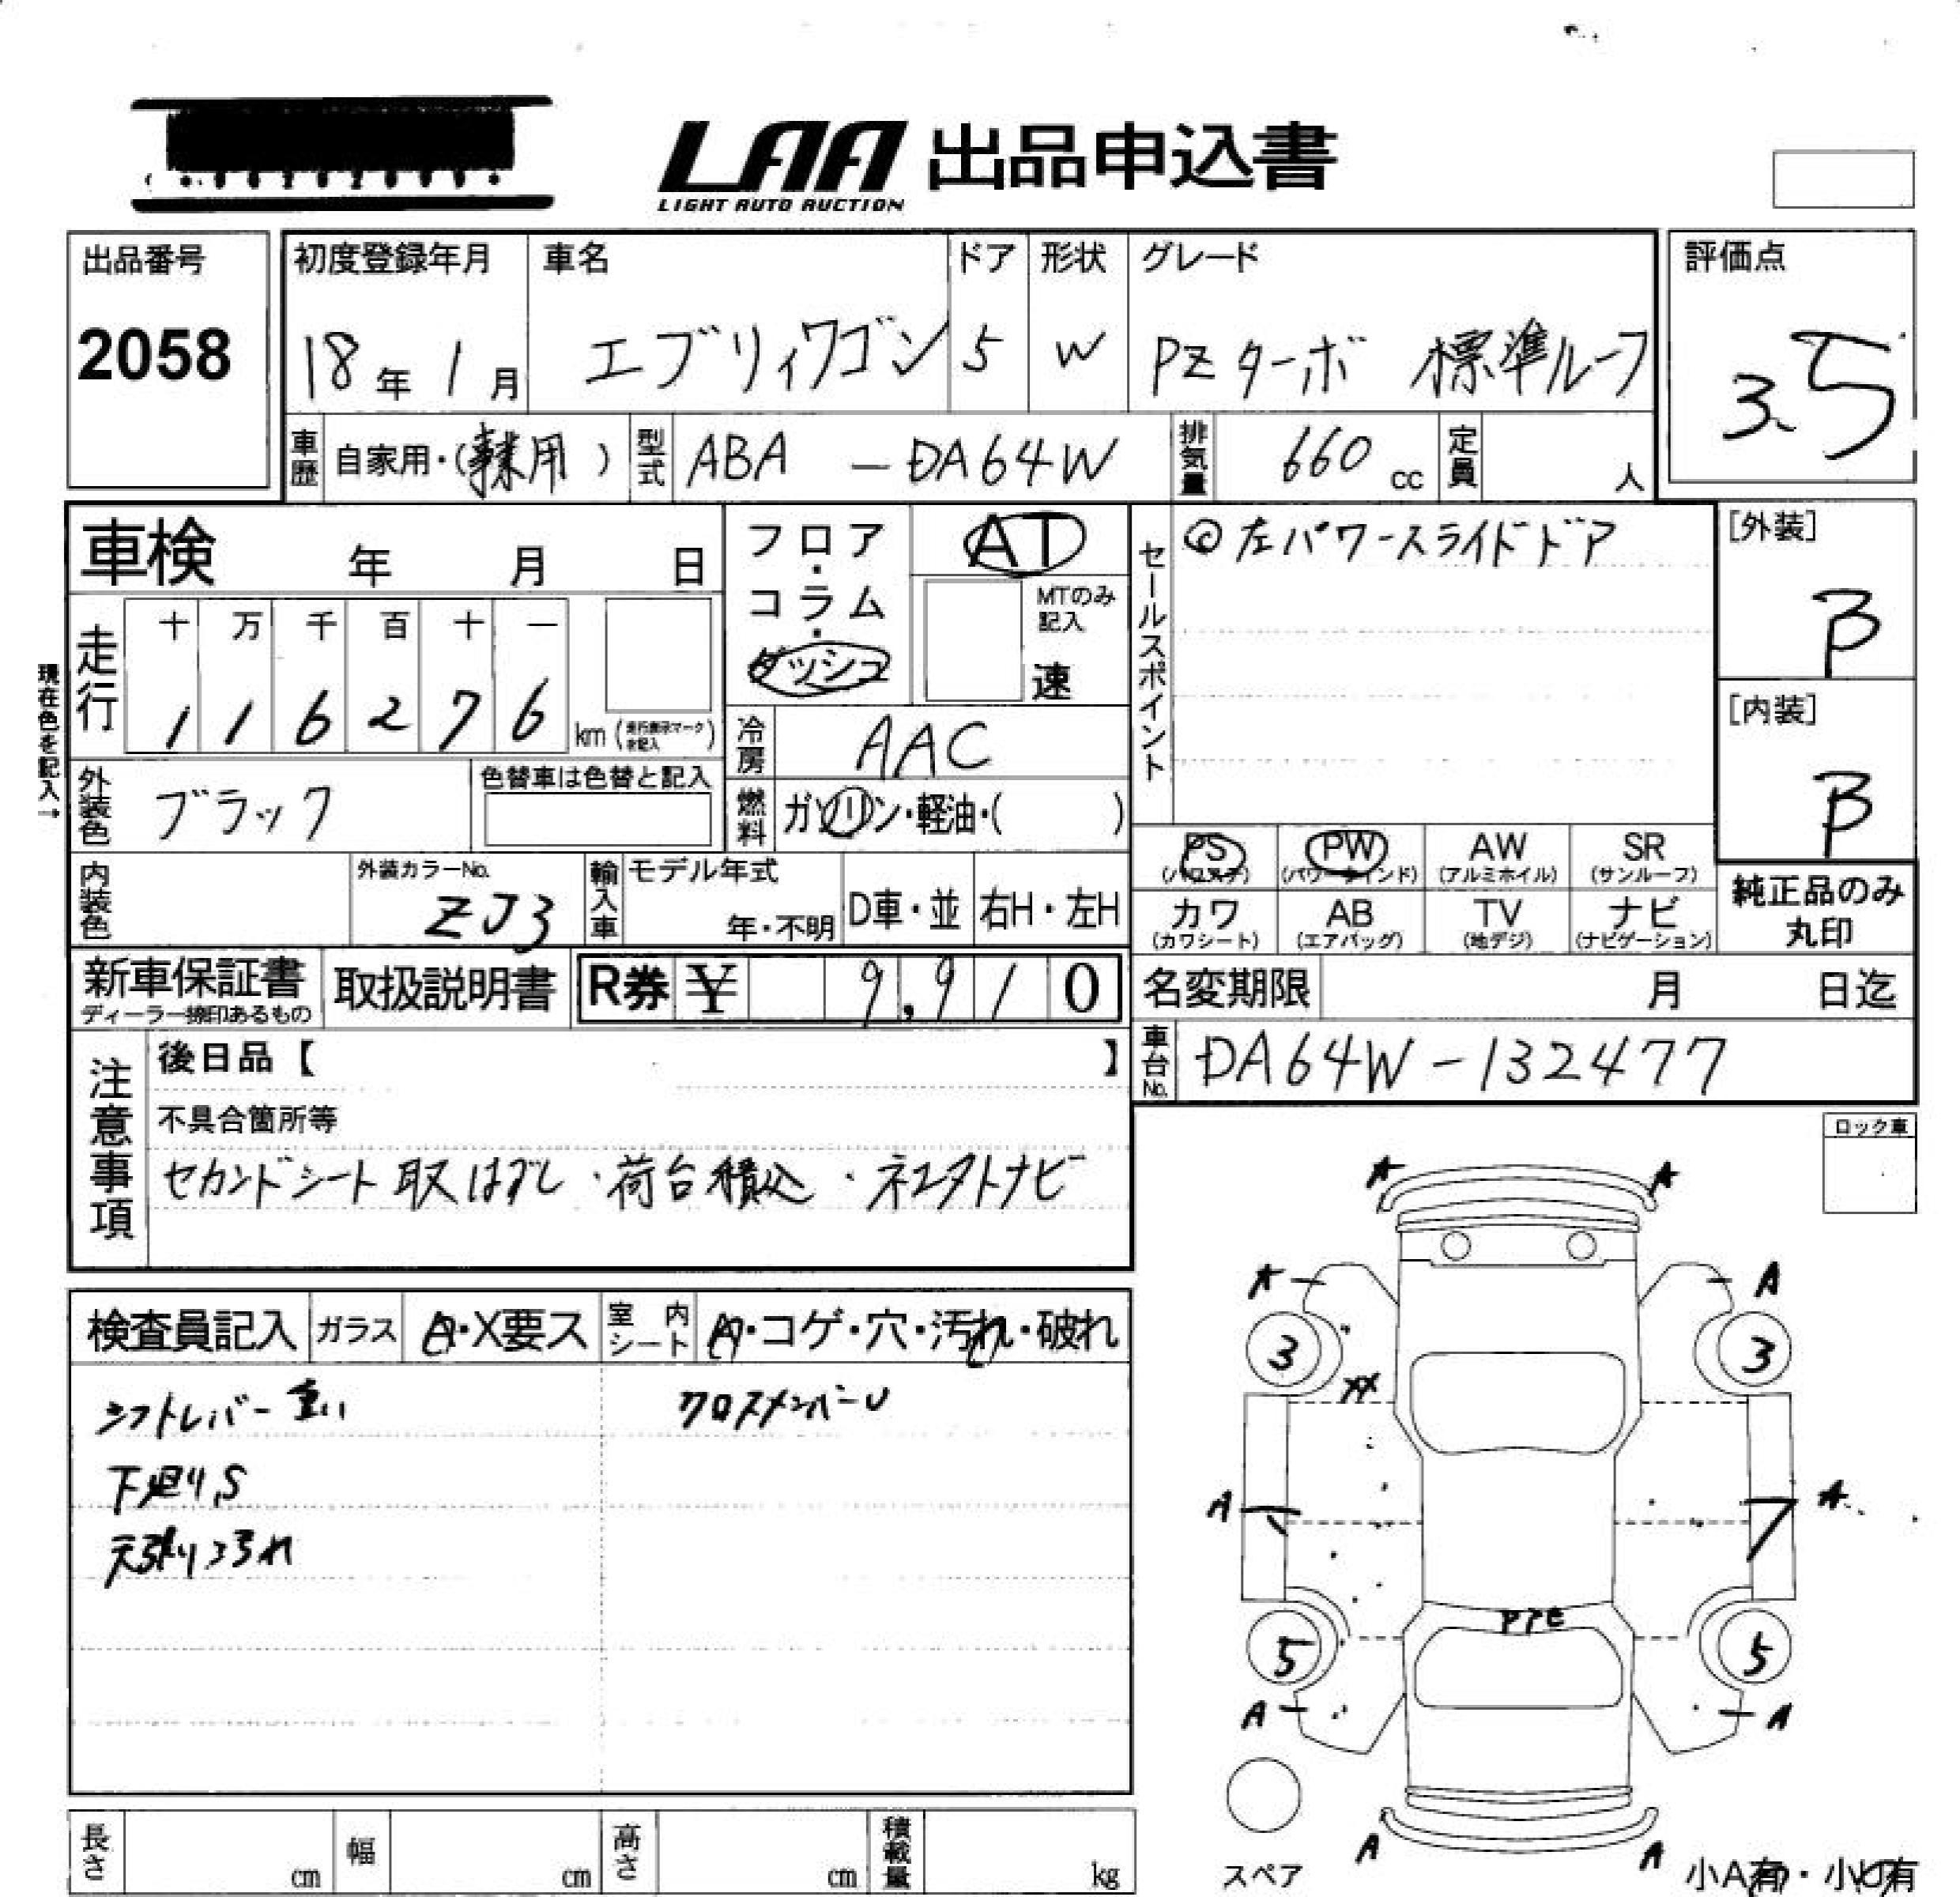 LAA 出品申込書
LIGHT AUTO AUCTION
出品番号
2058
初度登録年月
18年 1月
車名
エブリィワゴン
ドア
5
形状
W
グレード
PZターボ 標準ルーフ
評価点
3.5
車歴
自家用・(事業用)
型式
ABA - DA64W
排気量
660 cc
定員
人
車検 年 月 日
走行
十 万 千 百 十 一
1 1 6 2 7 6 km
現在色を記入→
フロア・コラム・ダッシュ
AT
MTのみ記入
速
冷房
AAC
燃料
ガソリン・軽油・( )
外装色
ブラック
色替車は色替と記入
内装色
外装カラーNo.
ZJ3
輸入車
モデル年式
年・不明
D車・並
右H・左H
セールスポイント
◎左パワースライドドア
[外装]
B
[内装]
B
PS PW AW SR
(パワーウインド) (アルミホイル) (サンルーフ)
カワ AB TV ナビ
(カワシート) (エアバッグ) (地デジ) (ナビゲーション)
純正品のみ
丸印
新車保証書
ディーラー捺印あるもの
取扱説明書
R券 ¥ 9,910
名変期限 月 日迄
車台No.
DA64W-132477
注意事項
後日品【 】
不具合箇所等
セカンドシート取はずし・荷台積込・
ロック車
検査員記入
ガラス
A・X要ス
室内シート
A・コゲ・穴・汚れ・破れ
シフトレバー重い
クロスメンバーU
下廻りS
天張り汚れ
A A
A A
3 3
XX
A A
5 5
A A
A A
スペア
長さ cm
幅 cm
高さ cm
積載量 kg
小A有・小U有